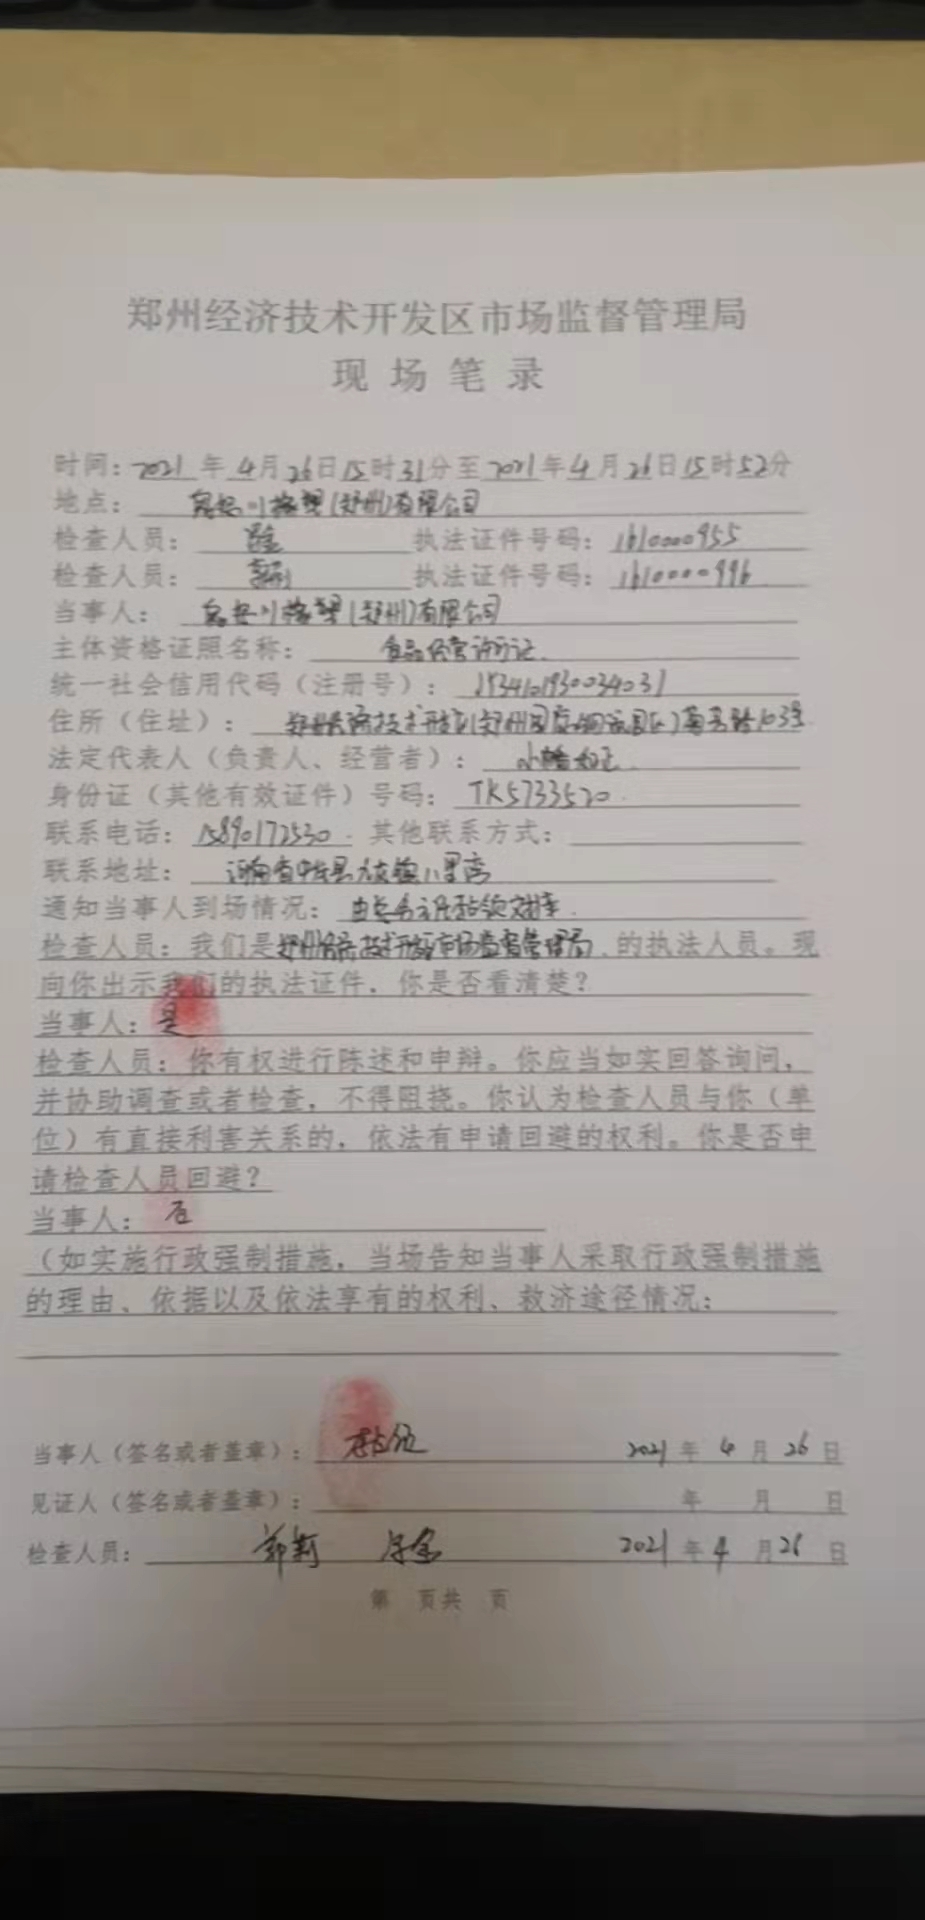 郑州经济技术开发区市场监督管理局
现场笔录
时间：2021年4月26日15时31分至2021年4月26日15时52分
地点：橡塑(郑州)有限公司
检查人员： 执法证件号码：1610000955
检查人员： 执法证件号码：1610000996
当事人：橡塑(郑州)有限公司
主体资格证照名称：食品经营许可证
统一社会信用代码（注册号）：
住所（住址）：103号
法定代表人（负责人、经营者）：
身份证（其他有效证件）号码：TK5733520
联系电话：15890172530 其他联系方式：
联系地址：河南省中牟县镇八里湾
通知当事人到场情况：由
检查人员：我们是郑州经济技术开发区市场监督管理局的执法人员。现
向你出示我们的执法证件，你是否看清楚？
当事人：是
检查人员：你有权进行陈述和申辩。你应当如实回答询问，
并协助调查或者检查，不得阻挠。你认为检查人员与你（单
位）有直接利害关系的，依法有申请回避的权利。你是否申
请检查人员回避？
当事人：否
（如实施行政强制措施，当场告知当事人采取行政强制措施
的理由、依据以及依法享有的权利、救济途径情况：
当事人（签名或者盖章）： 2021年4月26日
见证人（签名或者盖章）： 年 月 日
检查人员： 2021年4月26日
第 页共 页